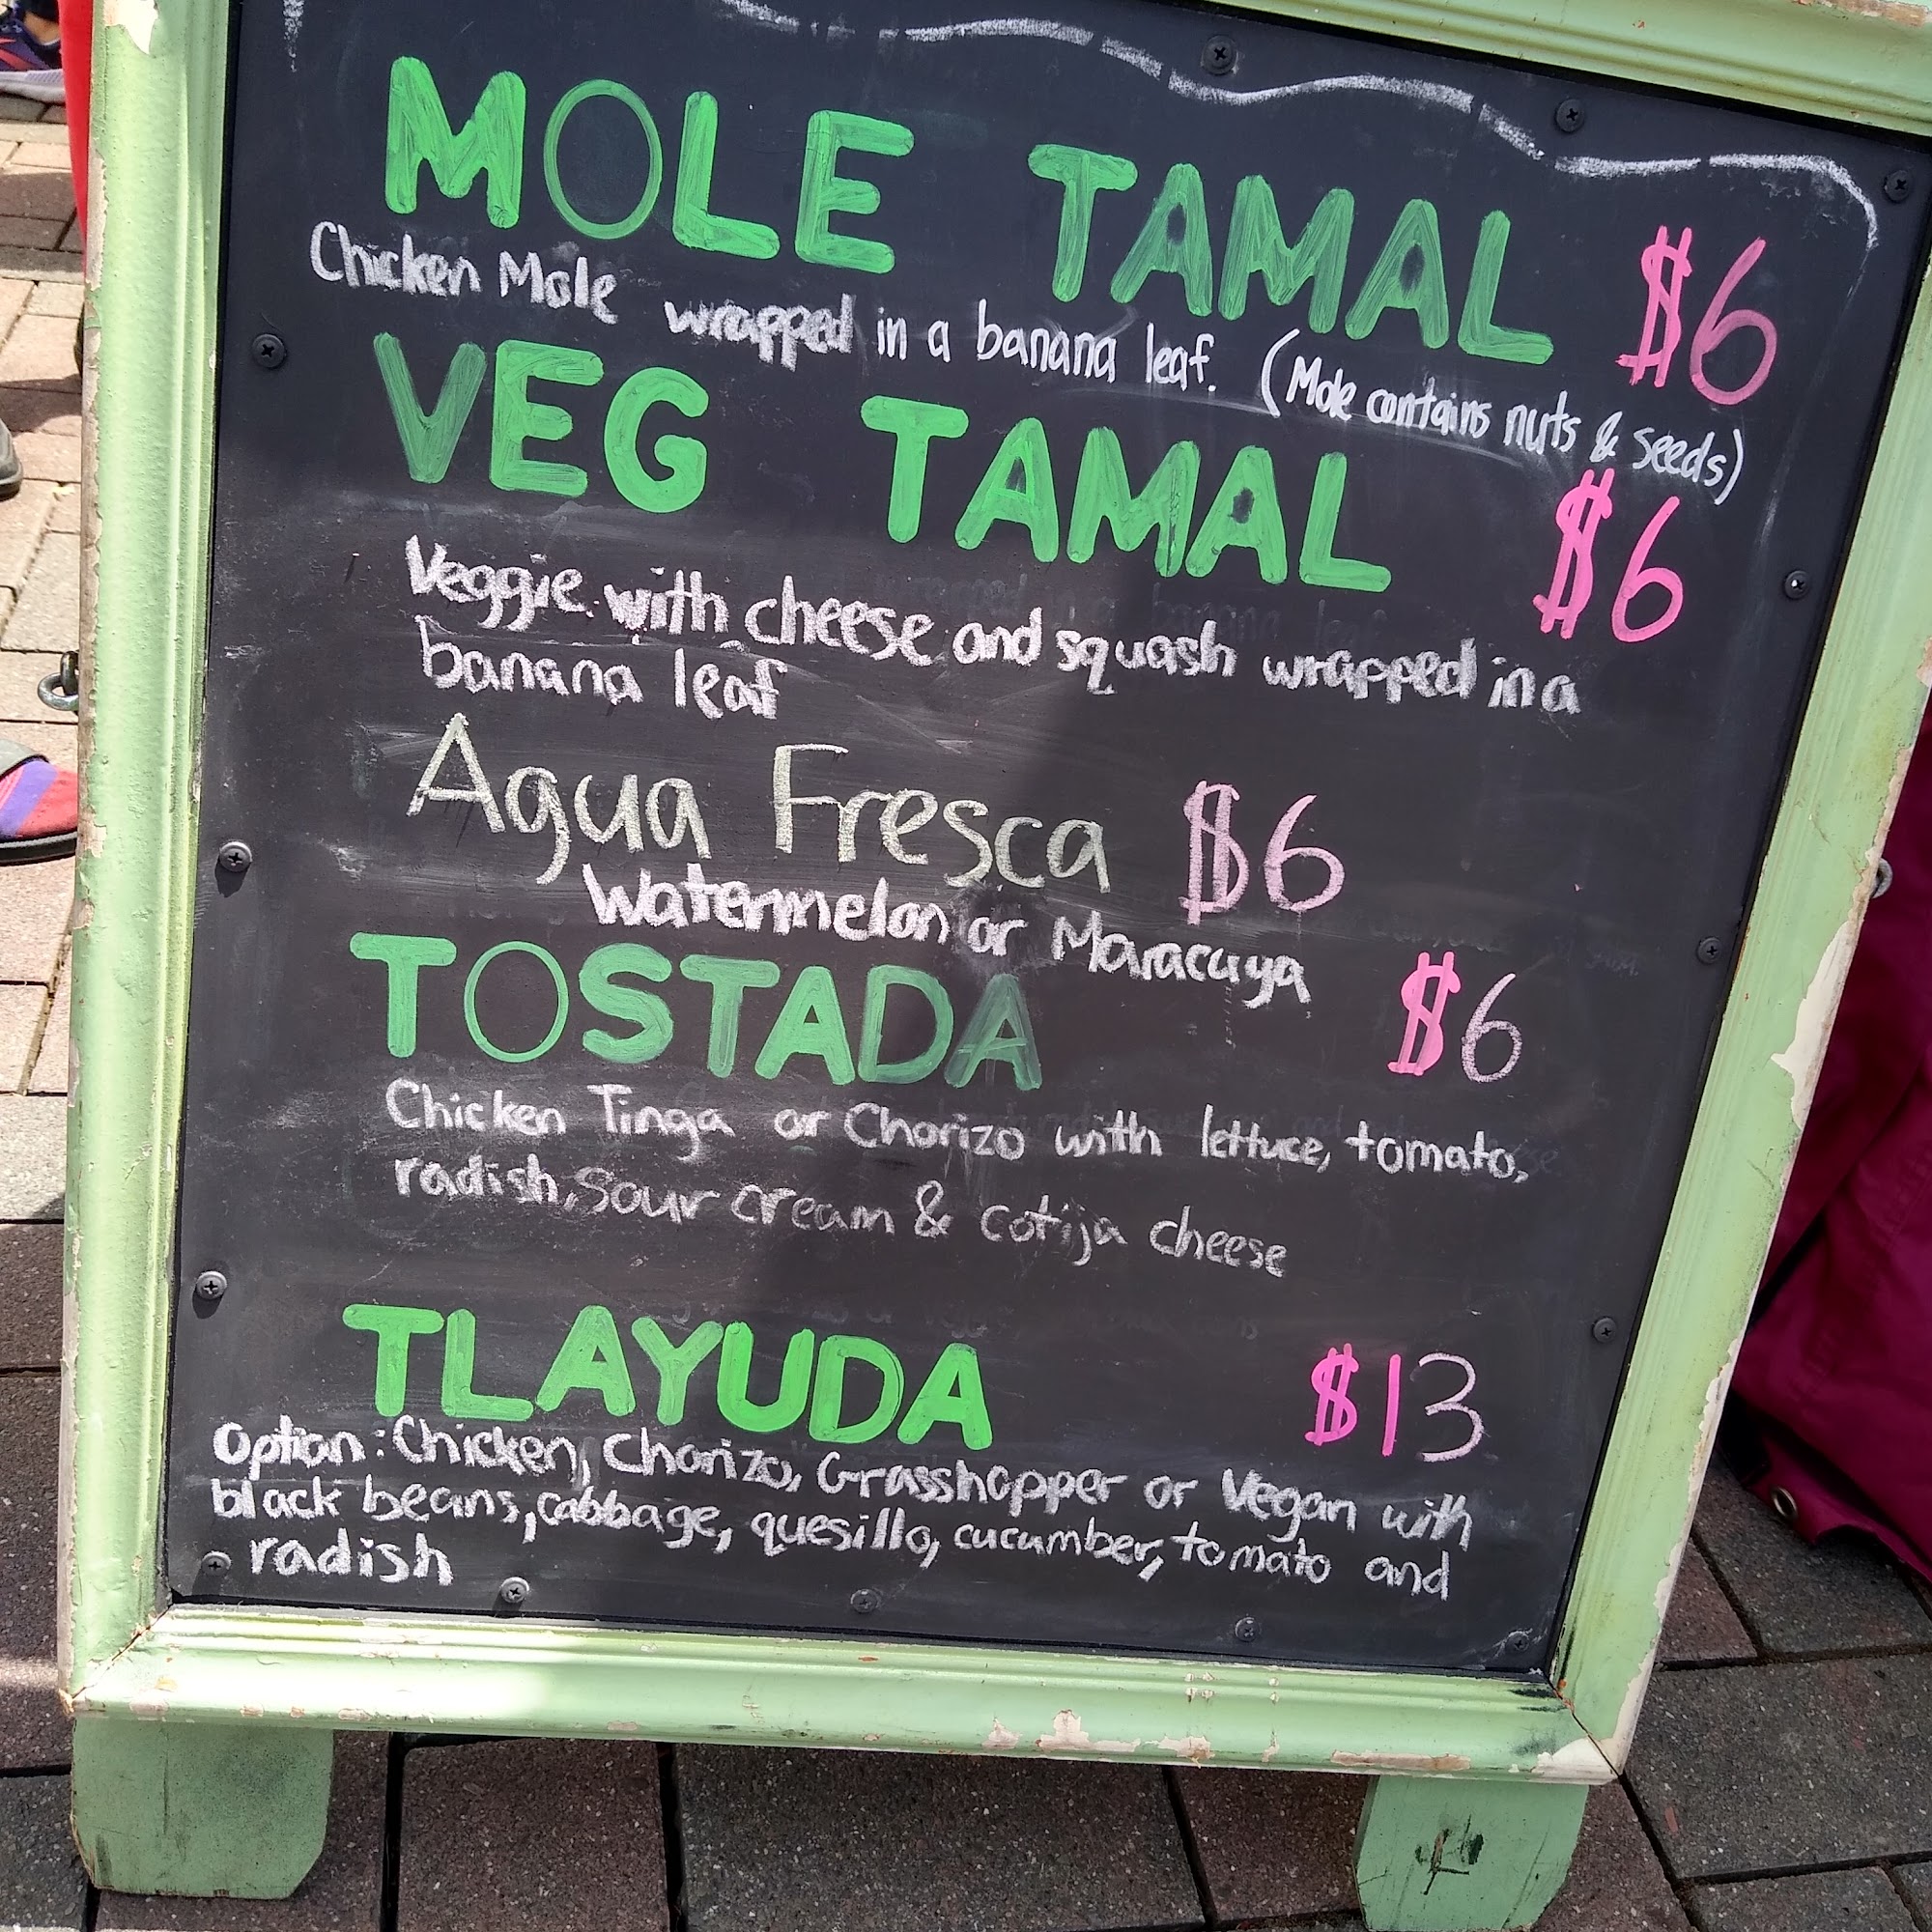 MOLE TAMAL $6
Chicken Mole wrapped in a banana leaf. (Mole contains nuts & seeds)
VEG TAMAL $6
Veggie with cheese and squash wrapped in a
banana leaf
Agua Fresca $6
Watermelon or Maracuya
TOSTADA $6
Chicken Tinga or Chorizo with lettuce, tomato,
radish, sour cream & cotija cheese
TLAYUDA $13
Option: Chicken, Chorizo, Grasshopper or Vegan with
black beans, cabbage, quesillo, cucumber, tomato and
radish